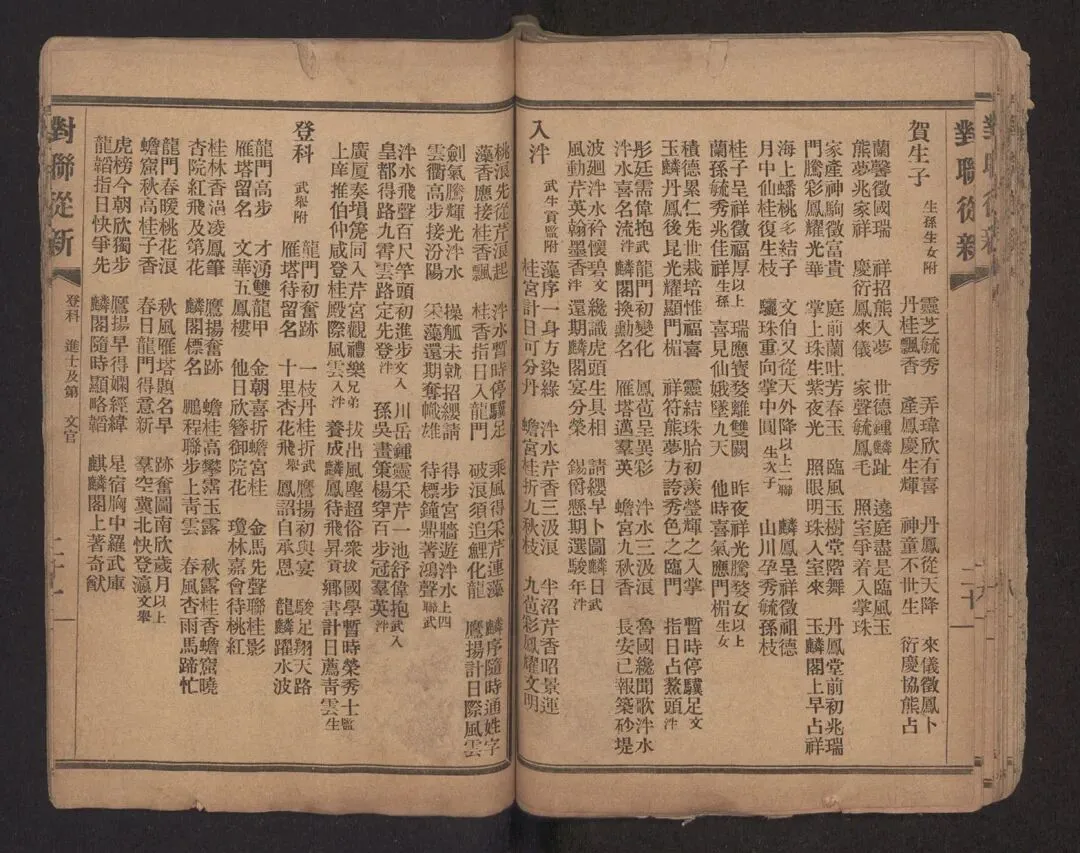 對聯從新
二十一
賀生子 生孫生女附
靈芝毓秀 弄璋欣有喜 丹鳳從天降 來儀徵鳳卜
丹桂飄香 產鳳慶生輝 神童不世生 衍慶協熊占
蘭馨徵國瑞 祥招熊入夢 世德鍾麟趾 遶庭盡是臨風玉
熊夢兆家祥 慶衍鳳來儀 家聲毓鳳毛 照室爭着入掌珠
家產神駒徵富貴 庭前蘭吐芳春玉 臨風玉樹堂階舞 丹鳳堂前初兆瑞
門騰彩鳳耀光華 掌上珠生紫夜光 照眼明珠入室來 玉麟閣上早占祥
海上蟠桃多結子 文伯又從天外降以上二聯 麟鳳呈祥徵祖德
月中仙桂復生枝 驪珠重向掌中圓生次子 山川孕秀毓孫枝
桂子呈祥徵福厚以上 瑞應寶婺離雙闕 昨夜祥光騰婺女以上
蘭孫毓秀兆佳祥生孫 喜見仙娥墜九天 他時喜氣應門楣生女
積德累仁先世栽培惟福喜 靈結珠胎初羨瑩輝之入掌 暫時停驥足文
玉麟丹鳳後昆光耀顯門楣 祥符熊夢方誇秀色之臨門 指日占鰲頭泮
彤廷需偉抱武 龍門初變化 鳳苞呈異彩 泮水三汲浪 魯國纔聞歌泮水
泮水喜名流泮 麟閣換勳名 雁塔邁羣英 蟾宮九秋香 長安已報築砂堤
波廻泮水衿懷碧文 纔識虎頭生具相 請纓早卜圖麟日武
風動芹英翰墨香泮 還期麟閣宴分榮 錫爵懸期選駿年泮
入泮 武生貢監附
藻序一身方染綠 泮水芹香三汲浪 半沼芹香昭景運
桂宮計日可分丹 蟾宮桂折九秋枝 九苞彩鳳耀文明
桃浪先從芹浪起 泮水暫時停驥足 乘風得采芹連藻 麟序隨時通姓字
藻香應接桂香飄 桂香指日入龍門 破浪須追鯉化龍 鷹揚計日際風雲
劍氣騰輝光泮水 操觚未就招纓請 得步宮牆遊泮水上四
雲衢高步接汾陽 采藻還期奪幟雄 待標鐘鼎著鴻聲聯武
泮水飛聲百尺竿頭初進步文入 川岳鍾靈采芹一池舒偉抱武入
皇都得路九霄雲路定先登泮 孫吳畫策楊穿百步冠羣英泮
廣廈奏塤篪同入芹宮觀禮樂兄弟 拔出風塵超俗衆拔 國學暫時榮秀士監
上庠推伯仲咸登桂殿際風雲入泮 養成麟鳳待飛昇貢 鄉書計日薦青雲生
登科 武舉附
龍門初奮跡 一枝丹桂折武 鷹揚初與宴 駿足翔天路
雁塔待留名 十里杏花飛舉 鳳詔自承恩 龍麟躍水波
龍門高步 才湧雙龍甲 金朝喜折蟾宮桂 金馬先聲聯桂影
雁塔留名 文華五鳳樓 他日欣簪御院花 瓊林嘉會待桃紅
桂林香浥凌鳳筆 鷹揚奮跡 蟾桂高攀霑玉露 秋露桂香蟾窟曉
杏院紅飛及第花 麟閣標名 鵬程聯步上青雲 春風杏雨馬蹄忙
龍門春暖桃花浪 秋風雁塔題名早 跡奮圖南欣歲月以上
蟾窟秋高桂子香 春日龍門得意新 羣空冀北快登瀛文舉
虎榜今朝欣獨步 鷹揚早得嫻經緯 星宿胸中羅武庫
龍韜指日快爭先 麟閣隨時顯略韜 麒麟閣上著奇猷
對聯從新
登科 進士及第 文官
二十一